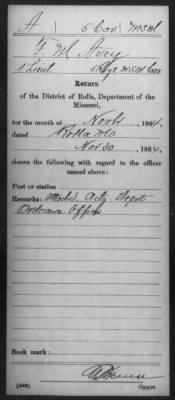 A 5 Cav. MSM
F. M. Avey
1 Lieut 5 Regt M.S.M. Cav.
Return
of the District of Rolla, Department of the
Missouri,
for the month of Novbr, 1864.
dated Rolla Mo
Nov 30, 1864.
shows the following with regard to the officer
named above:
Post or station
Remarks: Actg Depot
Ordnance Officer
Book mark:
(546) Copyist.